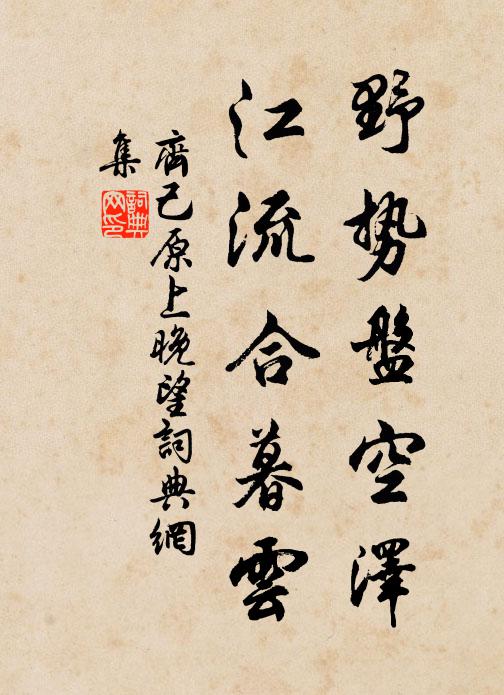 野势盤空澤
江流合暮雲
齊己原上晚望詞典網
集
詞典
网印